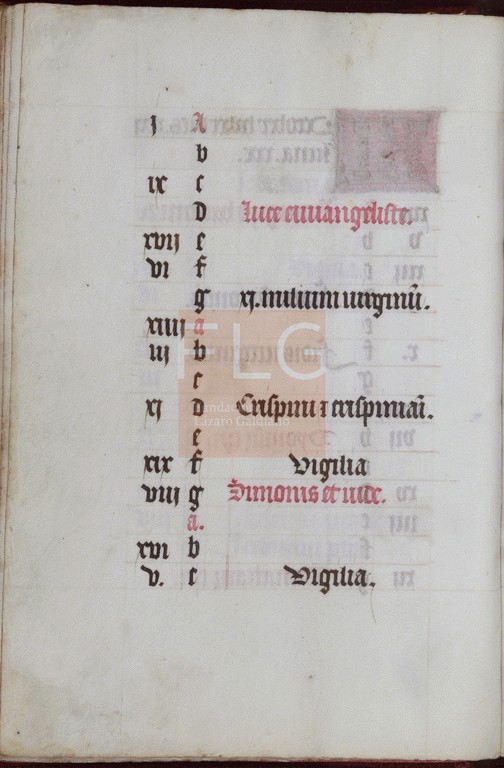 j A
b
ix c
D luce euuangeliste.
xvij e
vi f
g xj. milium uirginū.
xiiij a
iij b
c
xj D Crispini ⁊ crispiniai̅.
e
xix f Vigilia
viij g Simonis et iude.
a.
xvi b
v. c Vigilia.
FLG
Fundación
Lázaro Galdiano